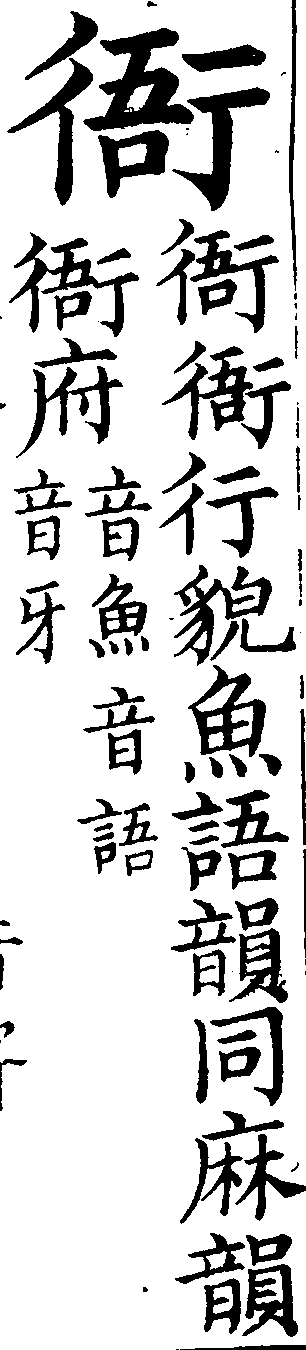 衙
衙衙行貌魚語韻同麻韻
衙府
音魚音語
音牙